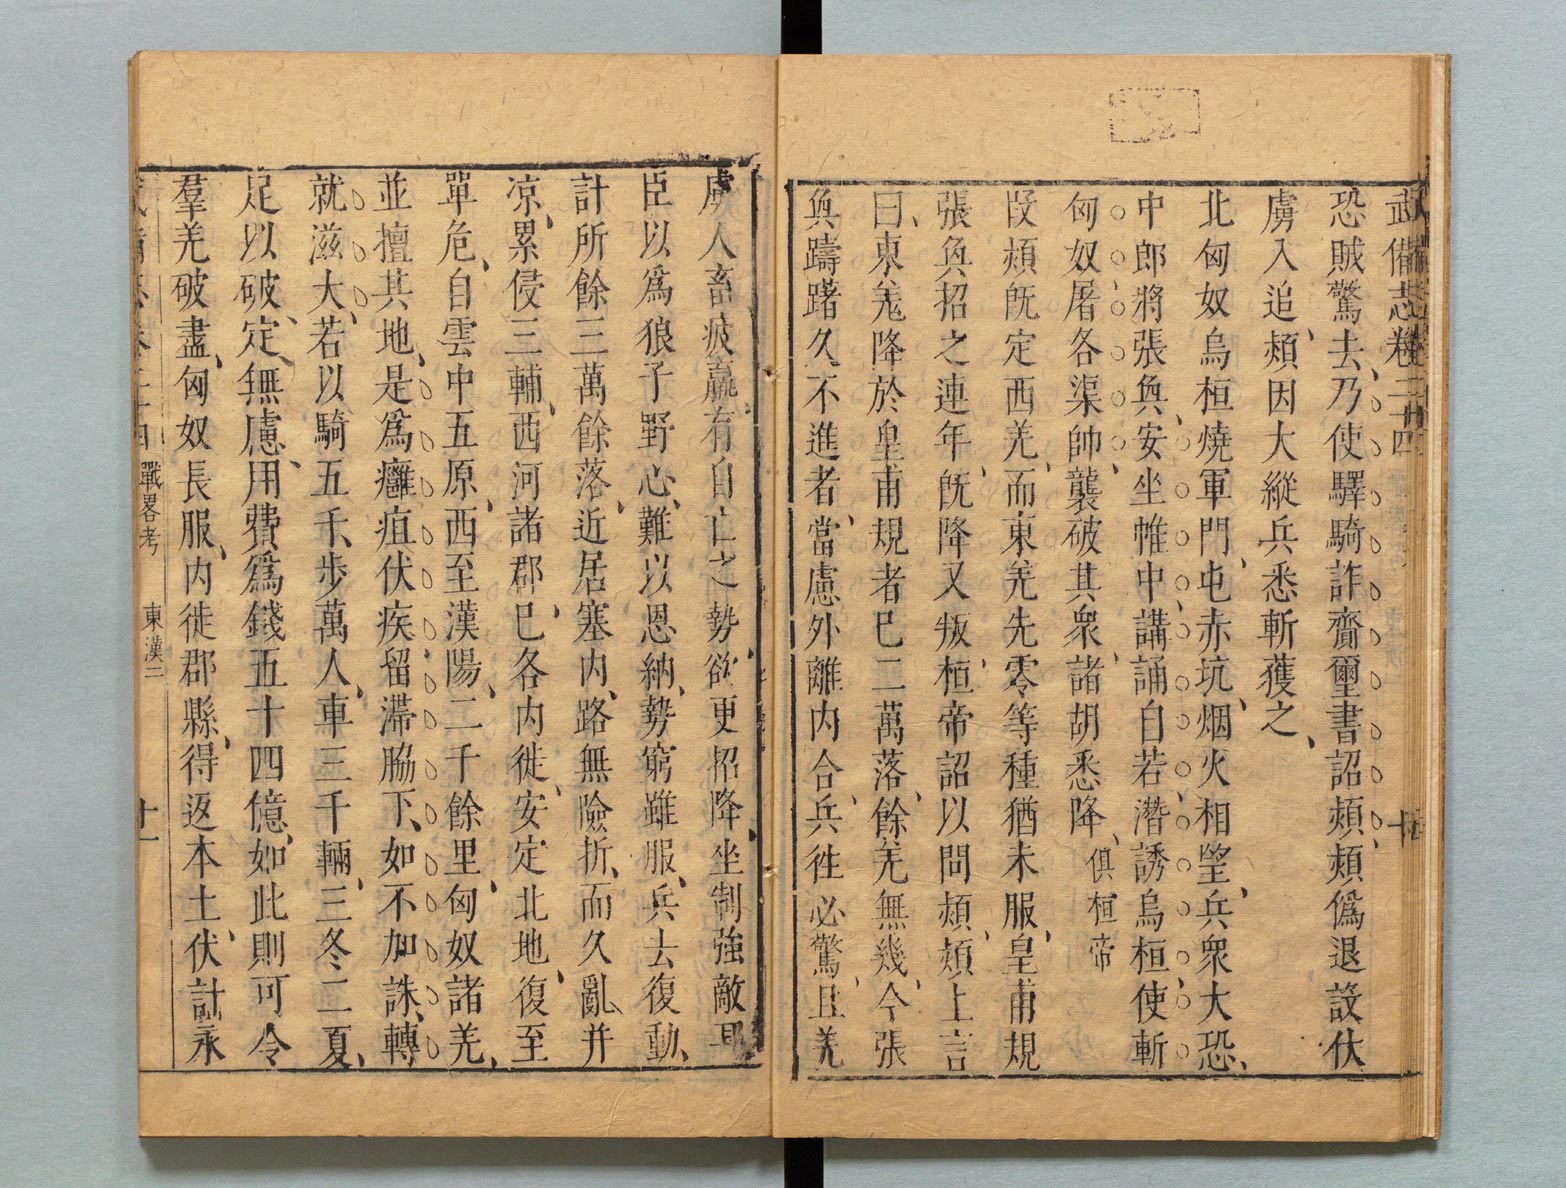 武備志卷二十四
恐賊驚去乃使驛騎詐齎璽書詔熲熲僞退設伏
虜入追熲因大縱兵悉斬獲之
北匈奴烏桓燒軍門屯赤坑烟火相望兵衆大恐
中郎將張奐安坐帷中講誦自若潛誘烏桓使斬
匈奴屠各渠帥襲破其衆諸胡悉降俱桓帝
段熲既定西羌而東羌先零等種猶未服皇甫規
張奐招之連年既降又叛桓帝詔以問熲熲上言
曰東羌降於皇甫規者巳二萬落餘羌無幾今張
奐躊躇久不進者當慮外離内合兵徃必驚且羌
虜人畜疲羸有自亡之勢欲更招降坐制強敵耳
臣以爲狼子野心難以恩納勢窮雖服兵去復動
計所餘三萬餘落近居塞内路無險折而久亂并
凉累侵三輔西河諸郡巳各内徙安定北地復至
單危自雲中五原西至漢陽二千餘里匈奴諸羌
並擅其地是爲癰疽伏疾留滯脇下如不加誅轉
就滋大若以騎五千步萬人車三千輛三冬二夏
足以破定無慮用費爲錢五十四億如此則可令
羣羌破盡匈奴長服内徙郡縣得返本土伏計永
戰畧考 東漢二 十一